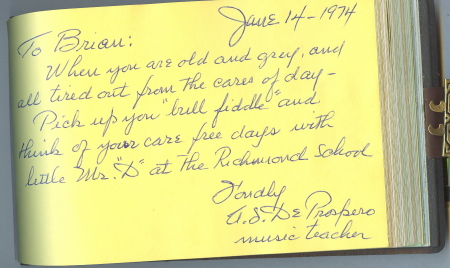 June 14-1974
To Brian:
When you are old and grey, and
all tired out from the cares of day-
Pick up you "bull fiddle" and
think of your care free days with
little Mr. "D" at the Richmond School
Fondly
A.S. De Prospero
music teacher